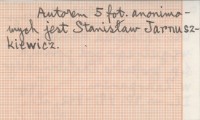 Autorem 5 fot. anonimo-
wych jest Stanisław Jarnusz-
kiewicz.